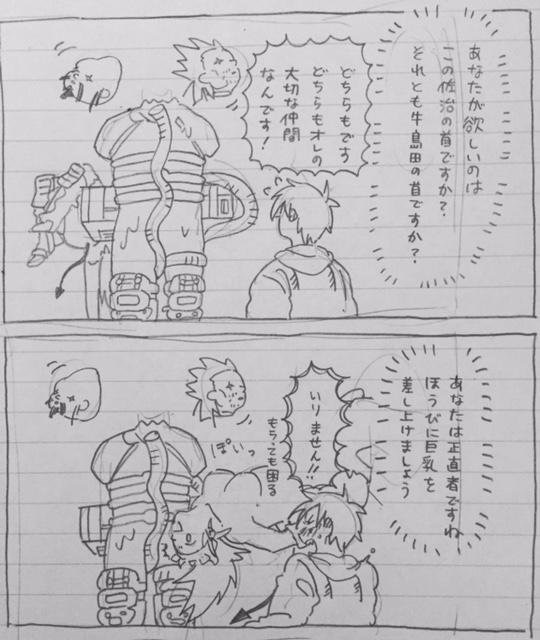 あなたが欲しいのは
この佐治の首ですか？
それとも牛島田の首ですか？
どちらもです
どちらもオレの
大切な仲間
なんです！
あなたは正直者ですね
ほうびに巨乳を
差し上げましょう
いりません!!
もらっても困る
ぽいっ